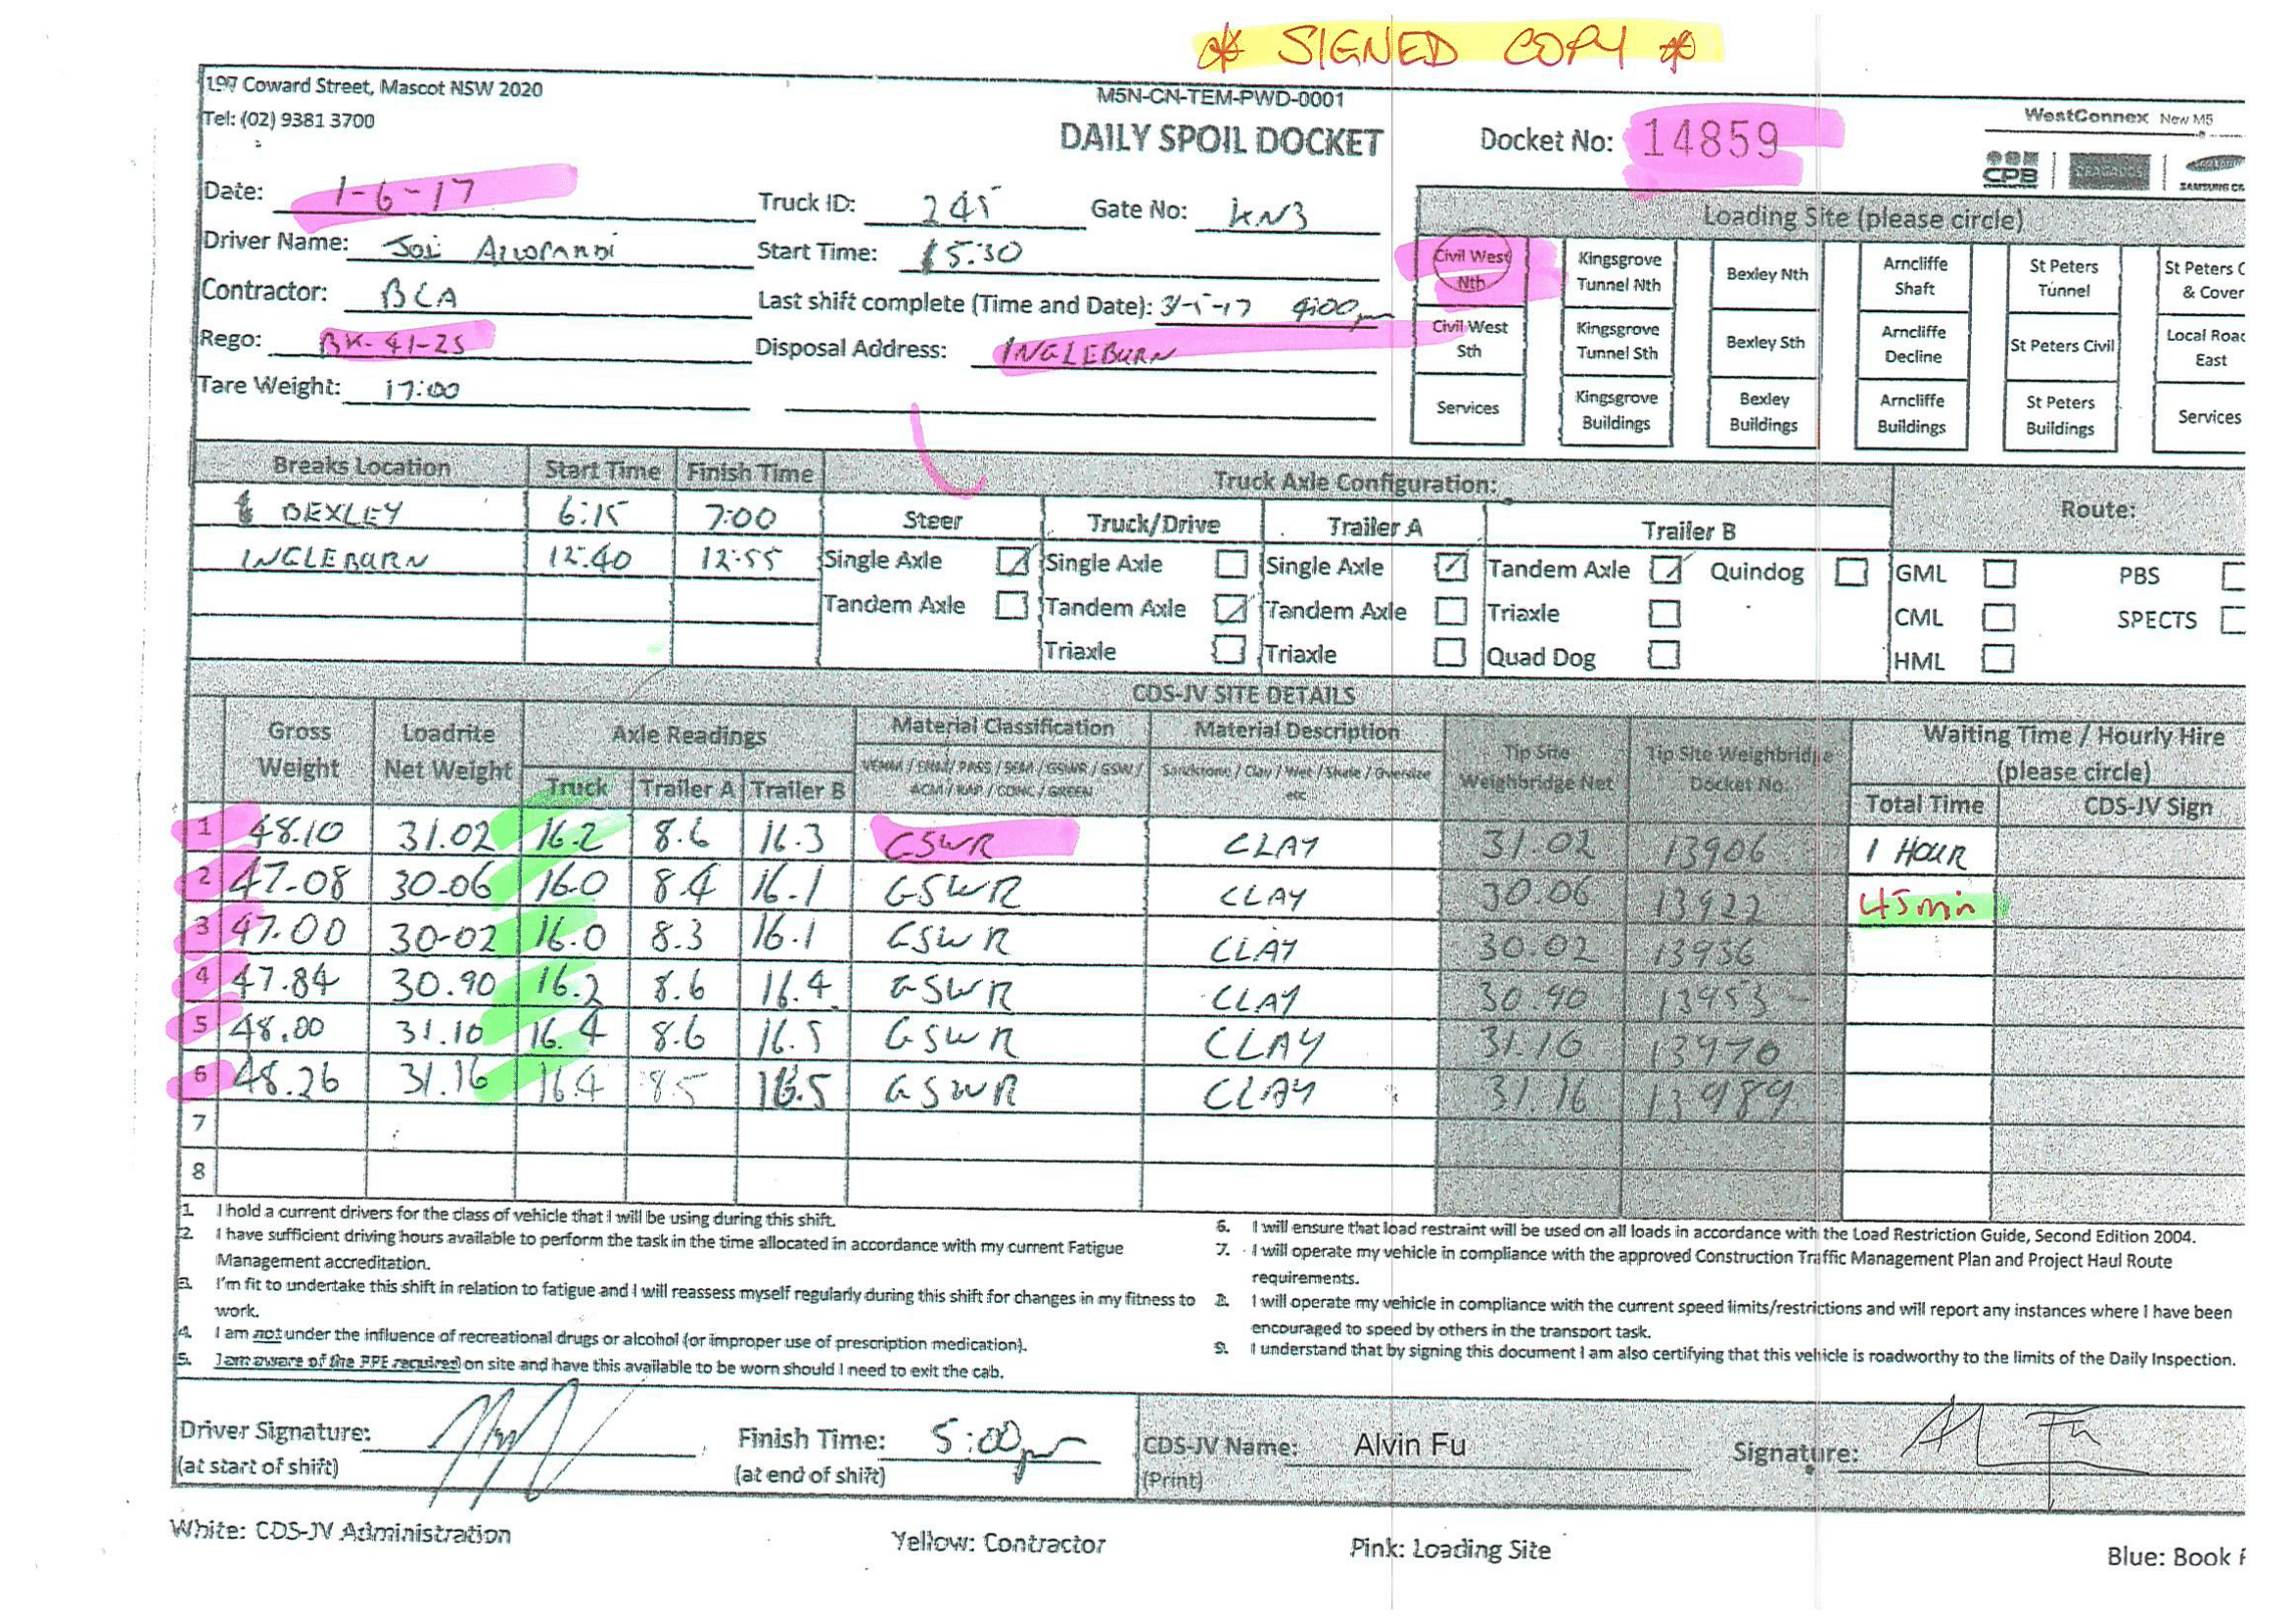 * SIGNED COPY *
197 Coward Street, Mascot NSW 2020
Tel: (02) 9381 3700
M5N-CN-TEM-PWD-0001
DAILY SPOIL DOCKET
Docket No: 14859
WestConnex New M5
CPB
DRAGADOS
Date: 1-6-17
Truck ID: 245
Gate No: KN3
Driver Name: Joe
Start Time: 5:30
Contractor: BCA
Last shift complete (Time and Date): 31-5-17 4:00pm
Rego: BK-41-25
Disposal Address: INGLEBURN
Tare Weight: 17:00
Loading Site (please circle)
Civil West Nth Kingsgrove Tunnel Nth Bexley Nth Arncliffe Shaft St Peters Tunnel St Peters C & Cover
Civil West Sth Kingsgrove Tunnel Sth Bexley Sth Arncliffe Decline St Peters Civil Local Road East
Services Kingsgrove Buildings Bexley Buildings Arncliffe Buildings St Peters Buildings Services
Breaks Location Start Time Finish Time Truck Axle Configuration: Route:
BEXLEY 6:15 7:00 Steer Truck/Drive Trailer A Trailer B
INGLEBURN 12:40 12:55 Single Axle Single Axle Single Axle Tandem Axle Quindog GML PBS
Tandem Axle Tandem Axle Tandem Axle Triaxle CML SPECTS
Triaxle Triaxle Quad Dog HML
CDS-JV SITE DETAILS
Gross Weight Loadrite Net Weight Axle Readings Material Classification Material Description Tip Site Weighbridge Net Tip Site Weighbridge Docket No. Waiting Time / Hourly Hire (please circle)
Truck Trailer A Trailer B VENM / ENM / PASS / SEM / GSWR / GSW / ACM / RAP / CONC / GREEN Sandstone / Clay / Wet / Shale / Oversize etc Total Time CDS-JV Sign
1 48.10 31.02 16.2 8.6 16.3 GSWR CLAY 31.02 13906 1 HOUR
2 47.08 30.06 16.0 8.4 16.1 GSWR CLAY 30.06 13922 45min
3 47.00 30-02 16.0 8.3 16.1 GSWR CLAY 30.02 13936
4 47.84 30.90 16.2 8.6 16.4 GSWR CLAY 30.90 13953
5 48.00 31.10 16.4 8.6 16.5 GSWR CLAY 31.16 13970
6 48.26 31.16 16.4 8.5 16.5 GSWR CLAY 31.16 13989
7
8
1. I hold a current drivers for the class of vehicle that I will be using during this shift.
2. I have sufficient driving hours available to perform the task in the time allocated in accordance with my current Fatigue
Management accreditation.
3. I'm fit to undertake this shift in relation to fatigue and I will reassess myself regularly during this shift for changes in my fitness to
work.
4. I am not under the influence of recreational drugs or alcohol (or improper use of prescription medication).
5. I am aware of the PPE required on site and have this available to be worn should I need to exit the cab.
6. I will ensure that load restraint will be used on all loads in accordance with the Load Restriction Guide, Second Edition 2004.
7. I will operate my vehicle in compliance with the approved Construction Traffic Management Plan and Project Haul Route
requirements.
8. I will operate my vehicle in compliance with the current speed limits/restrictions and will report any instances where I have been
encouraged to speed by others in the transport task.
9. I understand that by signing this document I am also certifying that this vehicle is roadworthy to the limits of the Daily Inspection.
Driver Signature:
(at start of shift)
Finish Time: 5:00pm
(at end of shift)
CDS-JV Name: Alvin Fu
(Print)
Signature: A Fu
White: CDS-JV Administration
Yellow: Contractor
Pink: Loading Site
Blue: Book